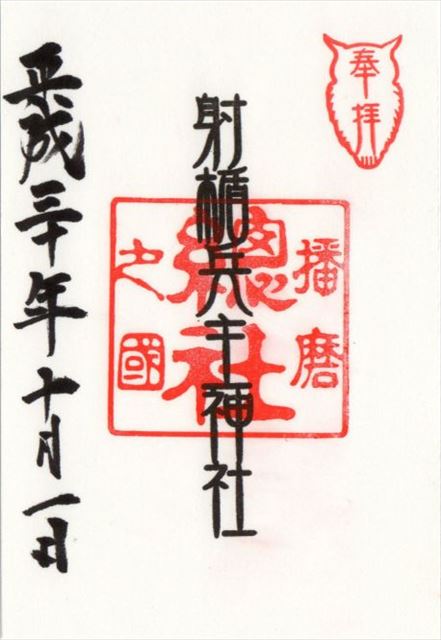 奉拝
播磨
總社
之國
射楯兵主神社
平成三十年十月一日